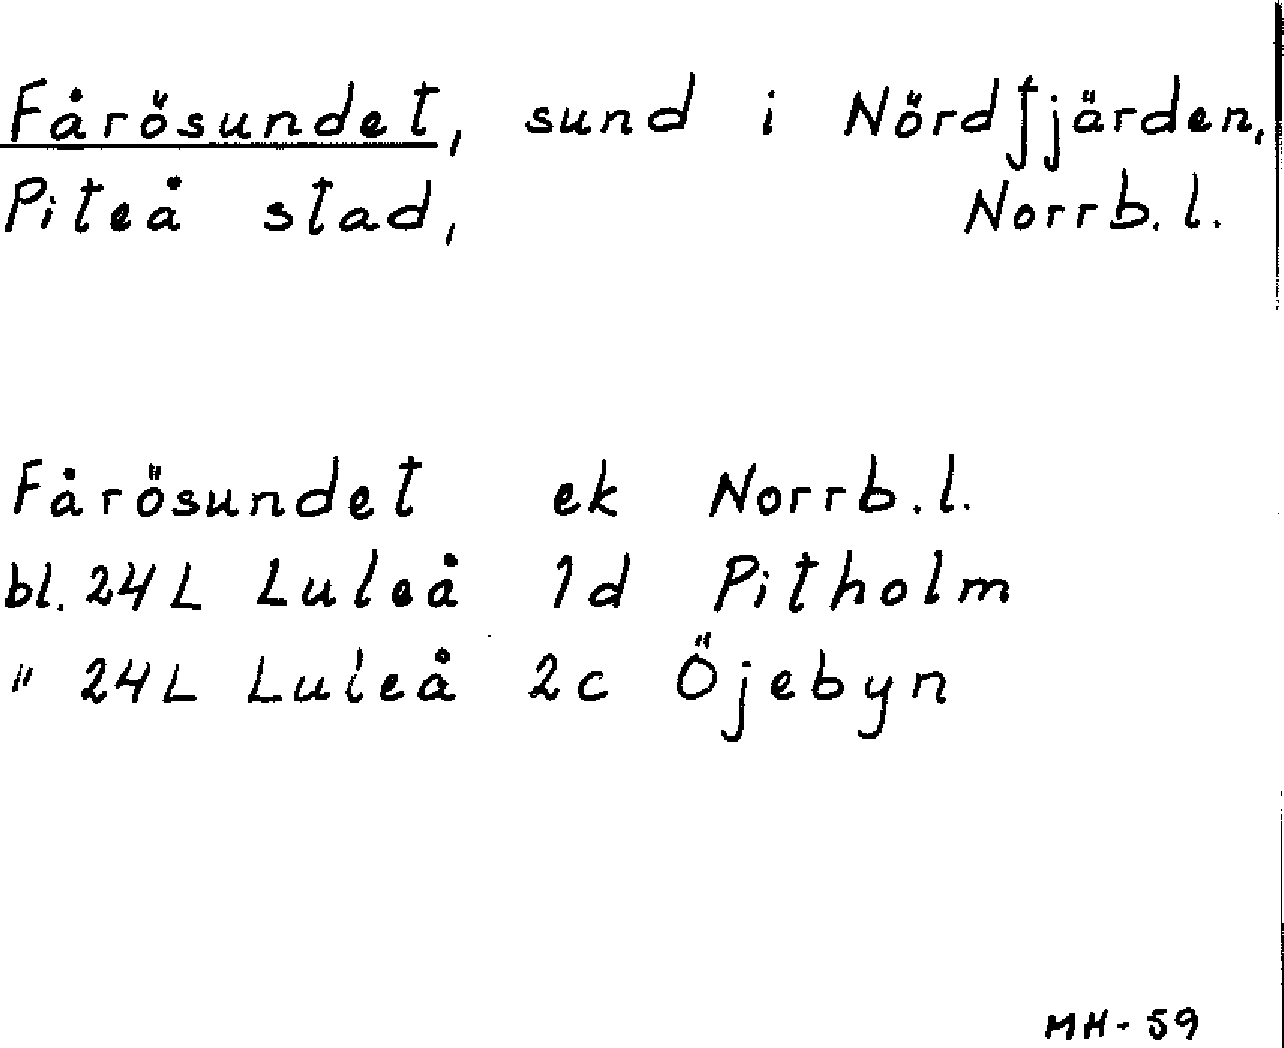 Fårösundet, sund i Nördfjärden,
Piteå stad, Norrb.l.
Fårösundet ek Norrb.l.
bl. 24L Luleå 1d Pitholm
" 24L Luleå 2c Öjebyn
MH-59